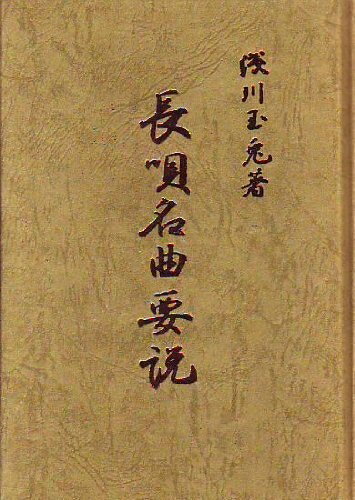 浅川玉兎著
長唄名曲要説